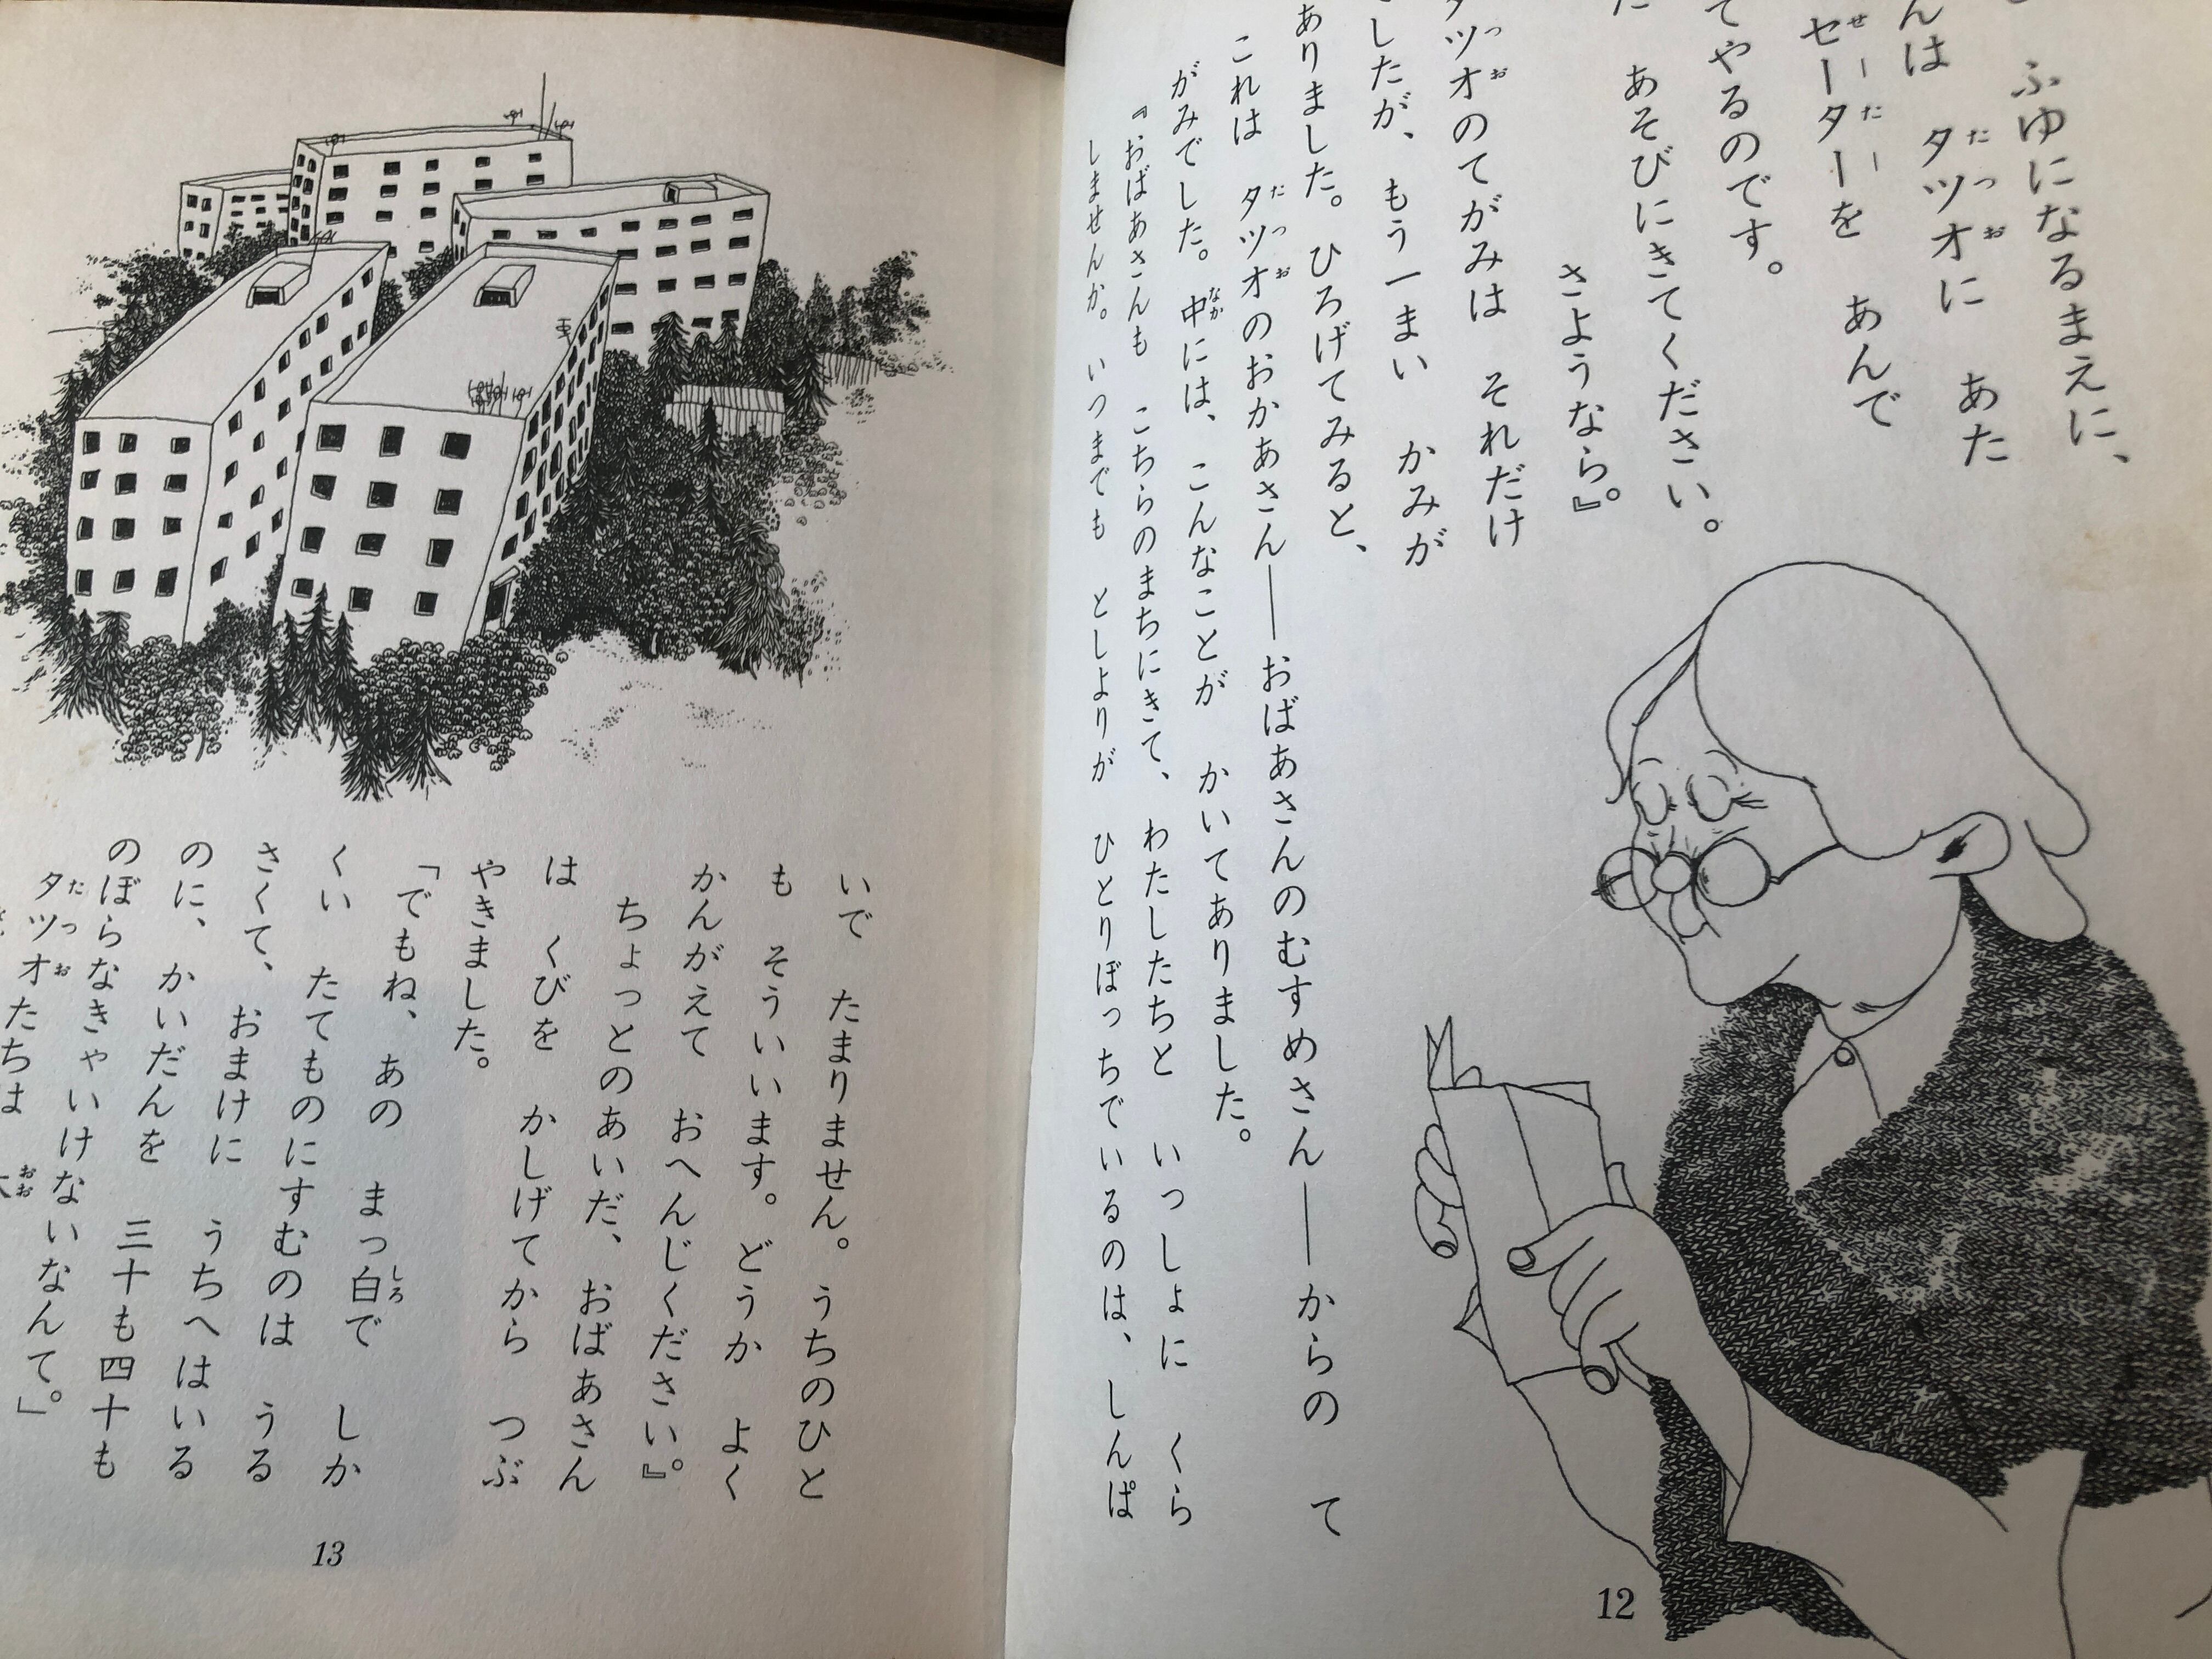 ふゆになるまえに、
んは タツオに あた
セーターを あんで
てやるのです。
あそびにきてください。
さようなら』
タツオのてがみは それだけ
でしたが、もう一まい かみが
ありました。ひろげてみると、
これは タツオのおかあさん――おばあさんのむすめさん――からの て
がみでした。中には、こんなことが かいてありました。
『おばあさんも こちらのまちにきて、わたしたちと いっしょに くら
しませんか。いつまでも としよりが ひとりぼっちでいるのは、しんぱ
12
いで たまりません。うちのひと
も そういいます。どうか よく
かんがえて おへんじください。』
ちょっとのあいだ、おばあさん
は くびを かしげてから つぶ
やきました。
「でもね、あの まっ白で しか
くい たてものにすむのは うる
さくて、おまけに うちへはいる
のに、かいだんを 三十も四十も
のぼらなきゃいけないなんて。」
タツオたちは
13